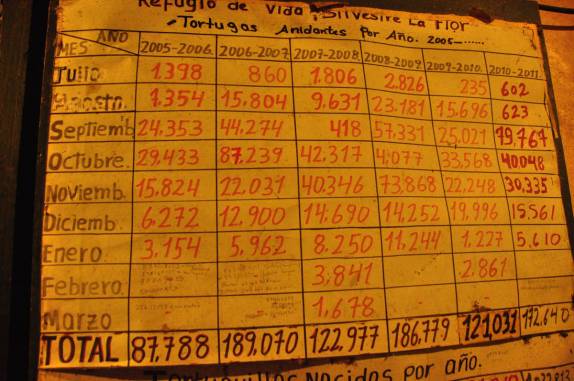 Refugio de Vida Silvestre La Flor
Tortugas Anidantes Por Año. 2005-......
MES AÑO 2005-2006. 2006-2007 2007-2008 2008-2009 2009-2010. 2010-2011.
Julio 1.398 860 1.806 2.826 235 602
Agosto. 1.354 15.804 9.631 23.181 15.696 623
Septiemb 24.353 44.274 418 57.331 25.021 79.767
Octubre. 29.433 87.239 42.317 4.077 33.568 40048
Noviemb. 15.824 22.031 40.346 73.868 22,248 30.335
Diciemb. 6.272 12.900 14.690 14.252 19.996 15.561
Enero. 3.154 5.962 8.250 11.244 1.227 5.610
Febrero 3.841 2.861
Marzo - - 1.678 -
TOTAL 87.788 189.070 122.977 186.779 121,031 172.640
Tortuguillos Nacidos Por año.